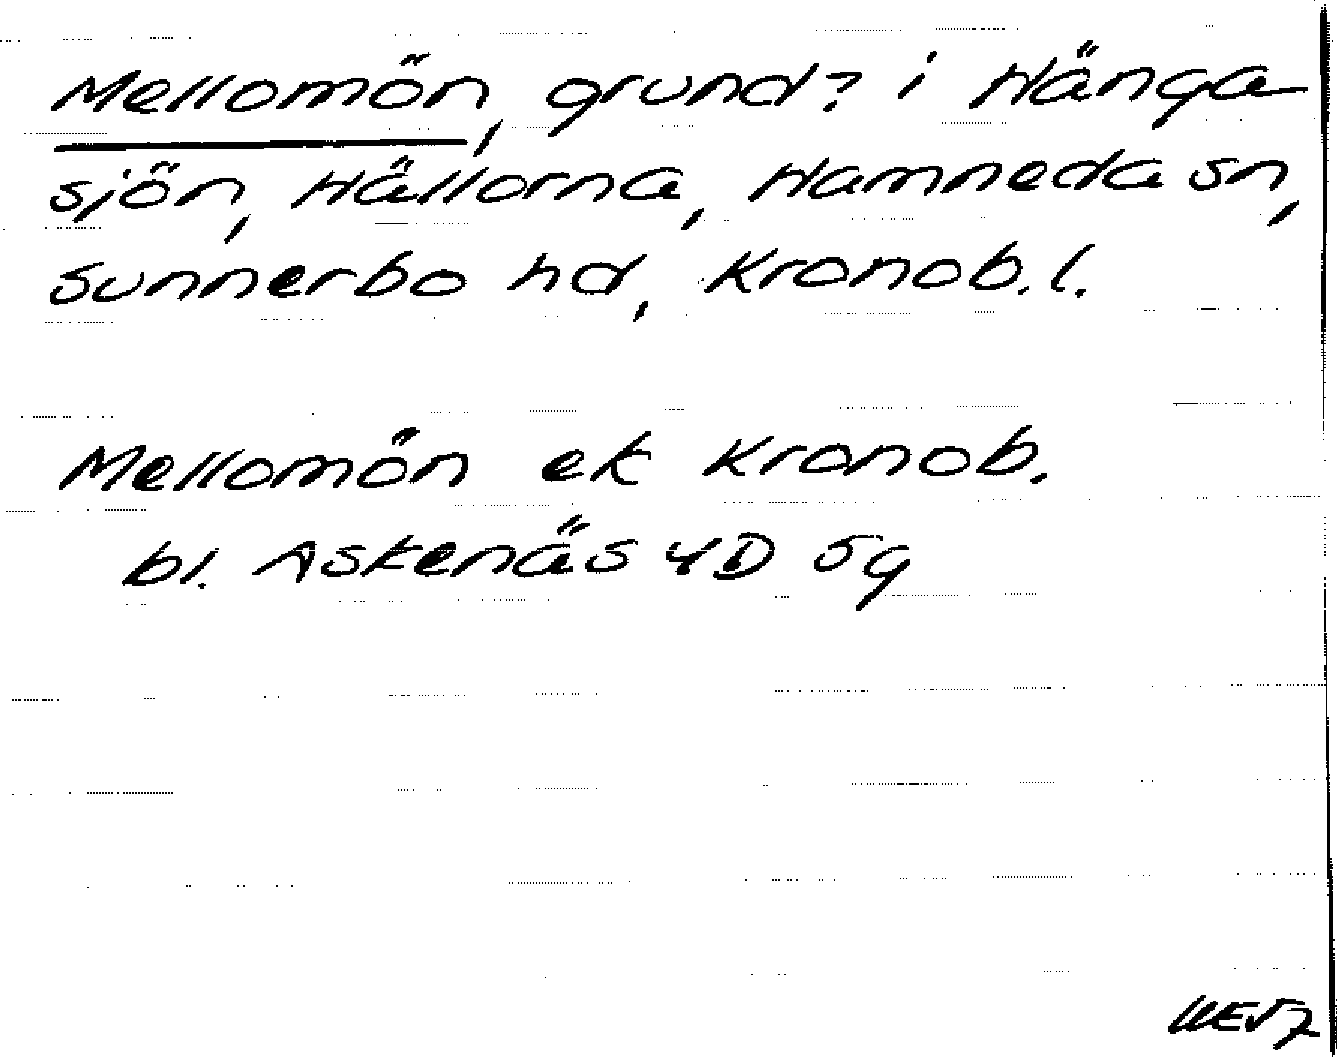 Mellomön, grund? i Hänga-
sjön, Hällorna, Hamneda sn,
Sunnerbo hd, Kronob. l.
Mellomön ek Kronob.
bl. Askenäs 4D 5g